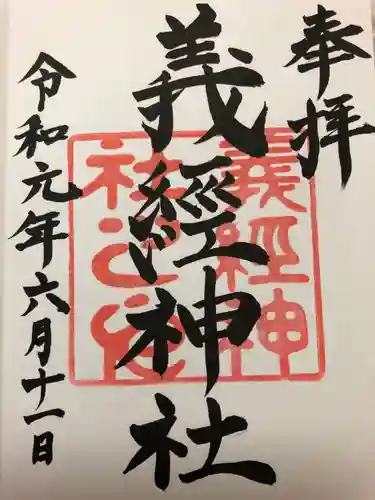 奉拝
義經神社
令和元年六月十一日
義經神
社之印